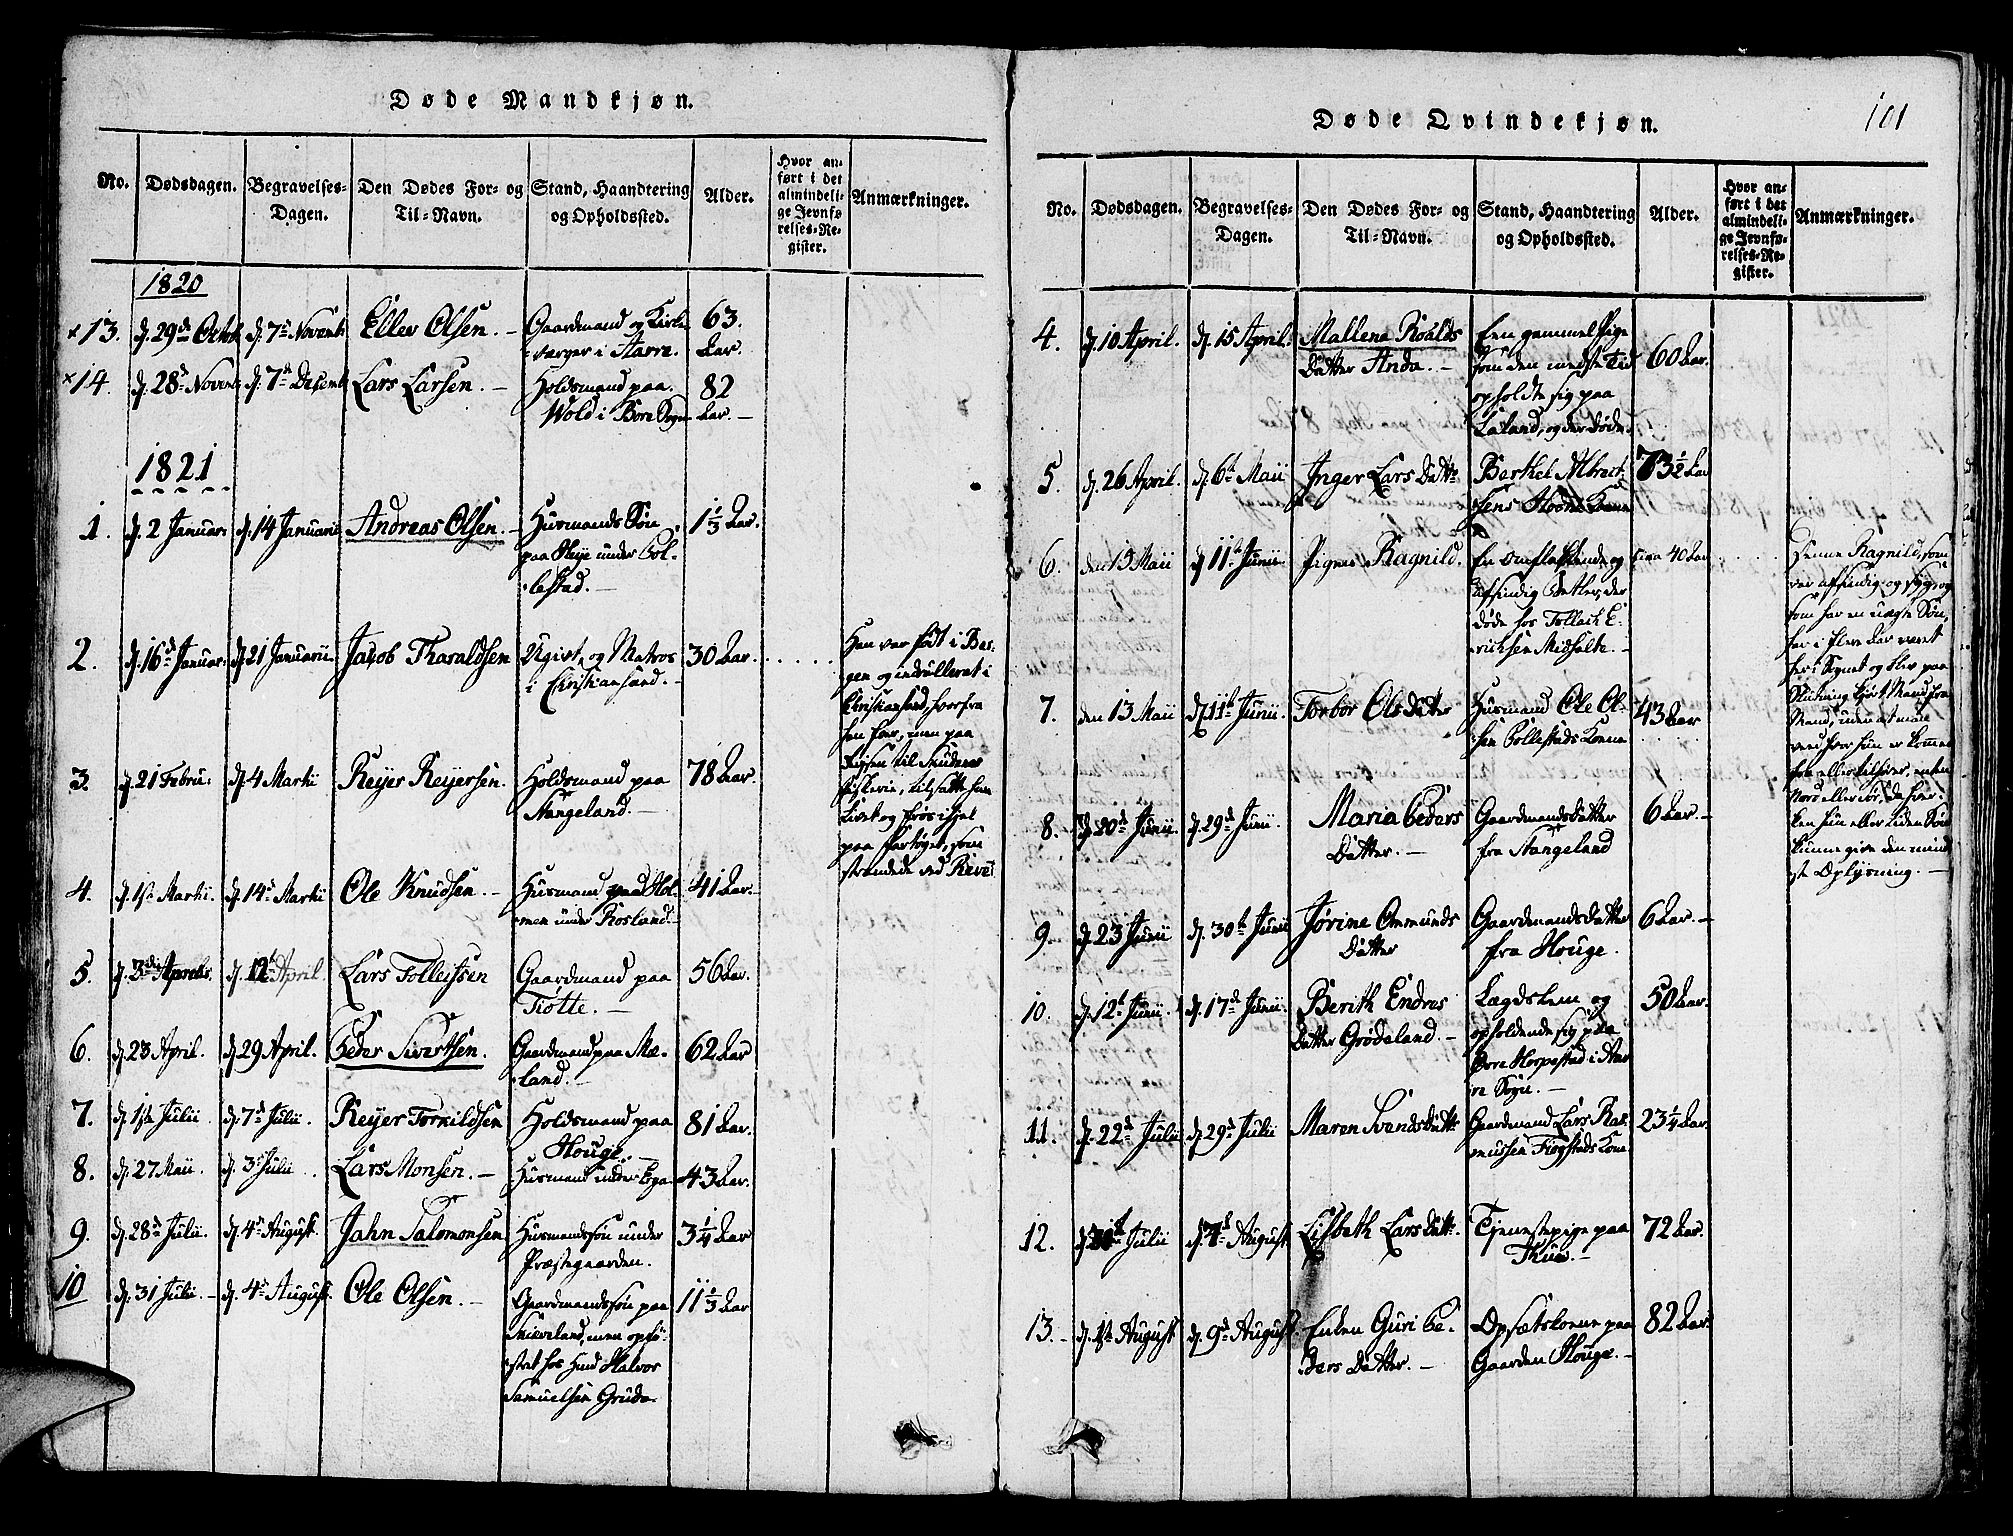 Døde Mandkjøn.
No. Dødsdagen. Begravelses-Dagen. Den Dødes For- og Til-Navn. Stand, Haandtering og Opholdssted. Alder. Hvor anført i det almindelige Jevnførelses-Register. Anmærkninger.
1820
×13. d. 29de Octob. d. 7de Novemb. Eller Olsen. – Gaardmand og Kirke-
værger i Aarre. 63. Aar.
×14. d. 28de Novemb. d. 7de Desemb. Lars Larsen. – Holdsmand paa
Wold i Bore Sogn 82 Aar. –
1821
1. d. 2 Januar: d. 14 Januarii Andreas Olsen. – Huusmands Søn
paa Heye under Bol-
lestad. – 1 1/3 Aar.
2. d. 16de Januar: d. 21 Januarii Jacob Tharaldsen Ugivt, og Matros
i Christiansand. – 30 Aar.
Han var født i Ber-
gen og indrulleret i
Christiansand, hvorfra
han foer, men paa
Reisen til Skudenes
Fiskerie, tilsatte han
Livet og frøs ihjel
paa Fartøyet, som
strandede ved Reve.
3. d. 21 Febru: d. 4 Martii Reyer Reyersen. Holdsmand paa
Stangeland. – 78 Aar.
4. d. 1ste Martii. d. 14de Martii Ole Knudsen. – Huusmand paa Hol-
men under Rosland. – 41 Aar.
5. d. 3die Aprilis. d. 12te April. Lars Tolleifsen Gaardmand paa
Tiøtte. – 56 Aar.
6. d. 23 April. d. 29 April. Peder Sivertsen. Gaardmand paa Mæ-
land. – 62 Aar
7. d. 1ste Julii d. 7de Julii. Reyer Torkildsen Holdsmand paa
Houge. – 81 Aar.
8. d. 27 Maii. d. 3die Julii. Lars Monsen. – Huusmand under Erga 43 Aar.
9. d. 28de Julii. d. 4de August. Jahn Salomonsen Huusmandssøn under
Præstegaarden. 3 1/4 Aar
10 d. 31 Julii. – d. 4de August. Ole Olsen. – Gaardmandssøn paa
Skieveland, men opfø-
stret hos
Samuelsen Grude. 11 1/3 Aar
Døde Qvindekjøn. 101
No. Dødsdagen. Begravelses-Dagen. Den Dødes For- og Til-Navn. Stand, Haandtering og Opholdssted. Alder. Hvor anført i det almindelige Jevnførelses-Register. Anmærkninger.
4. d. 10 April. d. 15 April. Mallena Roalds
Datter Anda. – Een gammel Pige
som den meste Tid
opholdt sig paa
Laland, og der døde. 60 Aar.
5. d. 26 April. d. 6te Maii Inger Lars Datter Berthel Albrect-
sens Hodne Kone 73 1/2 Aar
6. den 13 Maii d. 11te Junii. Pigen Ragnild. En omflakkende og
affindig Betler, der
døde hos Tollack E-
richsen Midholte. – circa 40 Aar
Denne Ragnild, som
var affindig og syg, og
som har en uægte Søn,
har i flere Aar været
her i Sognet og blev paa
Skikning kjørt Mand fra
Mand, uden at man
veed hvor hun er kommen
fra eller tilhører, enten
Nord eller Sør, da hver-
ken hun eller Liden Søn
kunne give den mind-
ste Oplysning. –
7. den 13 Maii d. 11te Junii. Torbor Olsdatter Huusmand Ole Ol-
sen Bollestads Kone 43 Aar
8. d. 20de Junii. d. 29de Junii. Maria Peders
Datter. – Gaardmandsdatter
fra Stangeland 6 Aar. –
9. d. 23 Junii d. 30te Junii Jørine Ommunds
Datter Gaardmandsdatter
fra Houge. 6 Aar. –
10. d. 12te Junii. d. 17de Junii. Berith Endres
Datter Grødeland. – Lægdslem og
opholdende sig paa
Øvre Horpestad i Aar-
re Sogn. – 50 Aar.
11. d. 22de Julii d. 29de Julii Maren Svendsdatter Gaardmand Lars Ras-
mussen Tiøgstads Kone 23 1/4 Aar.
12. Julii d. 7de August Lisbeth Larsdatt: Tjenestepige paa
Thue. – 72 Aar.
13. – d. 1ste August d. 9de August. Enken Guri Pe-
ders Datter. – Opsætskone paa
Gaarden Houge. – 82 Aar.